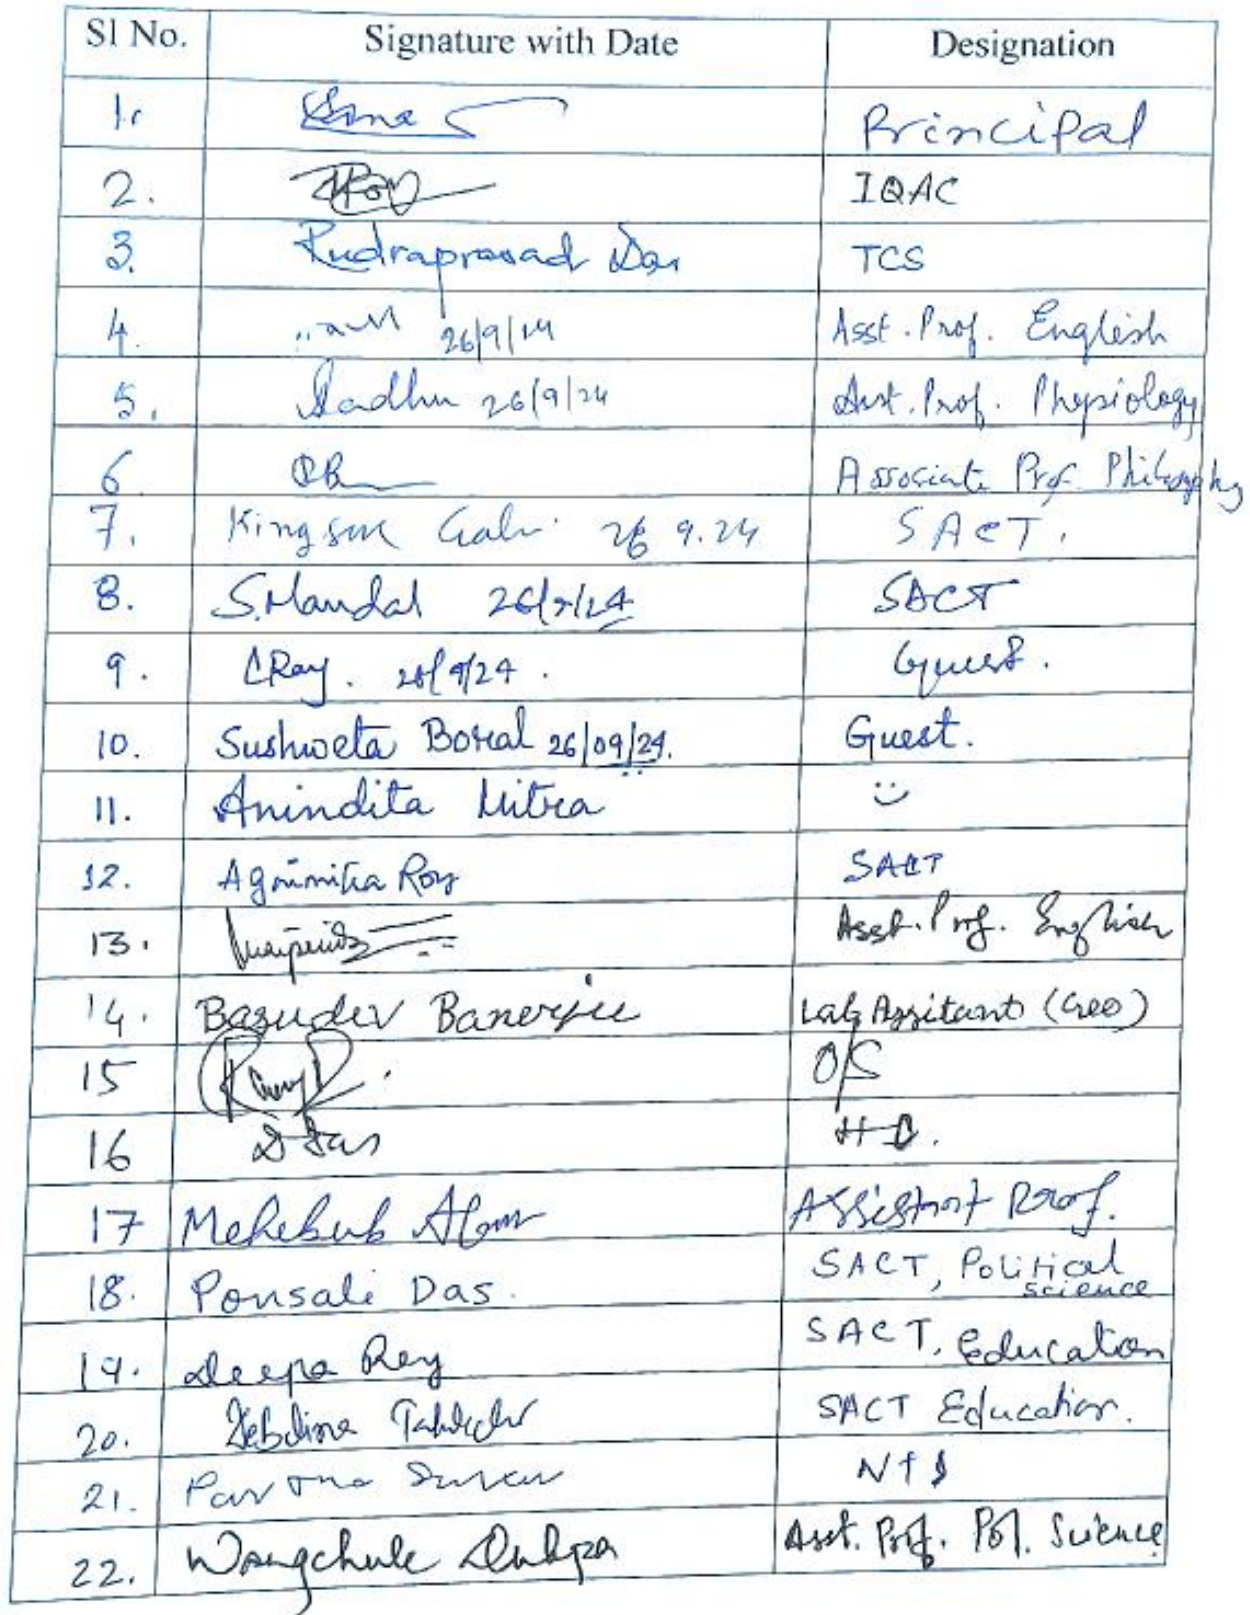 Sl No. Signature with Date Designation
1. Principal
2. IQAC
3. Rudraprasad Das TCS
4. 26/9/24 Asst. Prof. English
5. Sadhu 26/9/24 Asst. Prof. Physiology
6 Associate Prof. Philosophy
7. Kingsuk 26 9.24 SACT.
8. S.Mandal 26/9/24 SACT
9. CRay. 26/9/24. Guest.
10. Sushweta Boral 26/09/24. Guest.
11. Anindita Mitra
12. Agnimitra Roy SACT
13. Asst. Prof. English
14. Basudev Banerjee Lab Assitant (Geo)
15 O/S
16 D Das
17 Mehebub Alam Assistant Prof.
18. Pousali Das. SACT, Political
science
19. Deepa Roy SACT, Education
20. SACT Education.
21. NTS
22. Wangchuk Dukpa Asst. Prof. Pol. Science